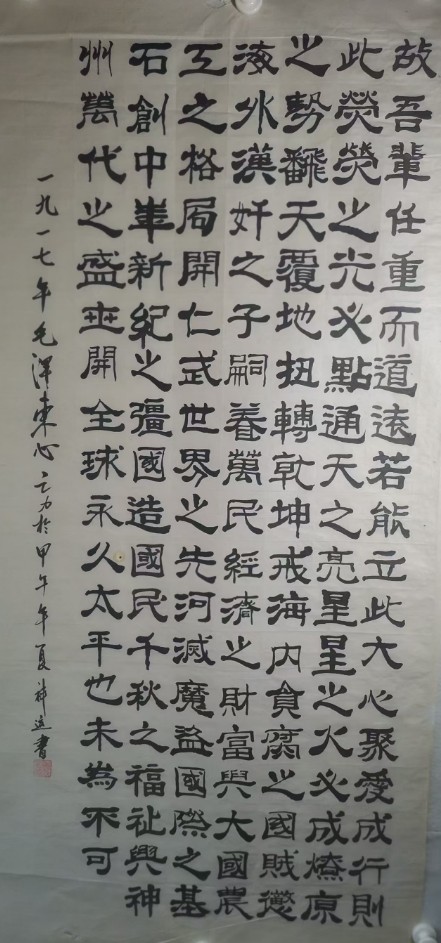 故吾輩任重而道遠若能立此大心聚愛成行則
此熒熒之光必點通天之亮星星之火必成燎原
之勢飜天覆地扭轉乾坤戒海內貪腐之國賊懲
海外漢奸之子嗣養萬民經濟之財富興大國農
工之格局開仁武世界之先河滅魔盜國際之基
石創中華新紀之疆國造國民千秋之福祉興神
州萬代之盛世開全球永久太平也未為不可
一九一七年毛澤東心之力於甲午年夏書